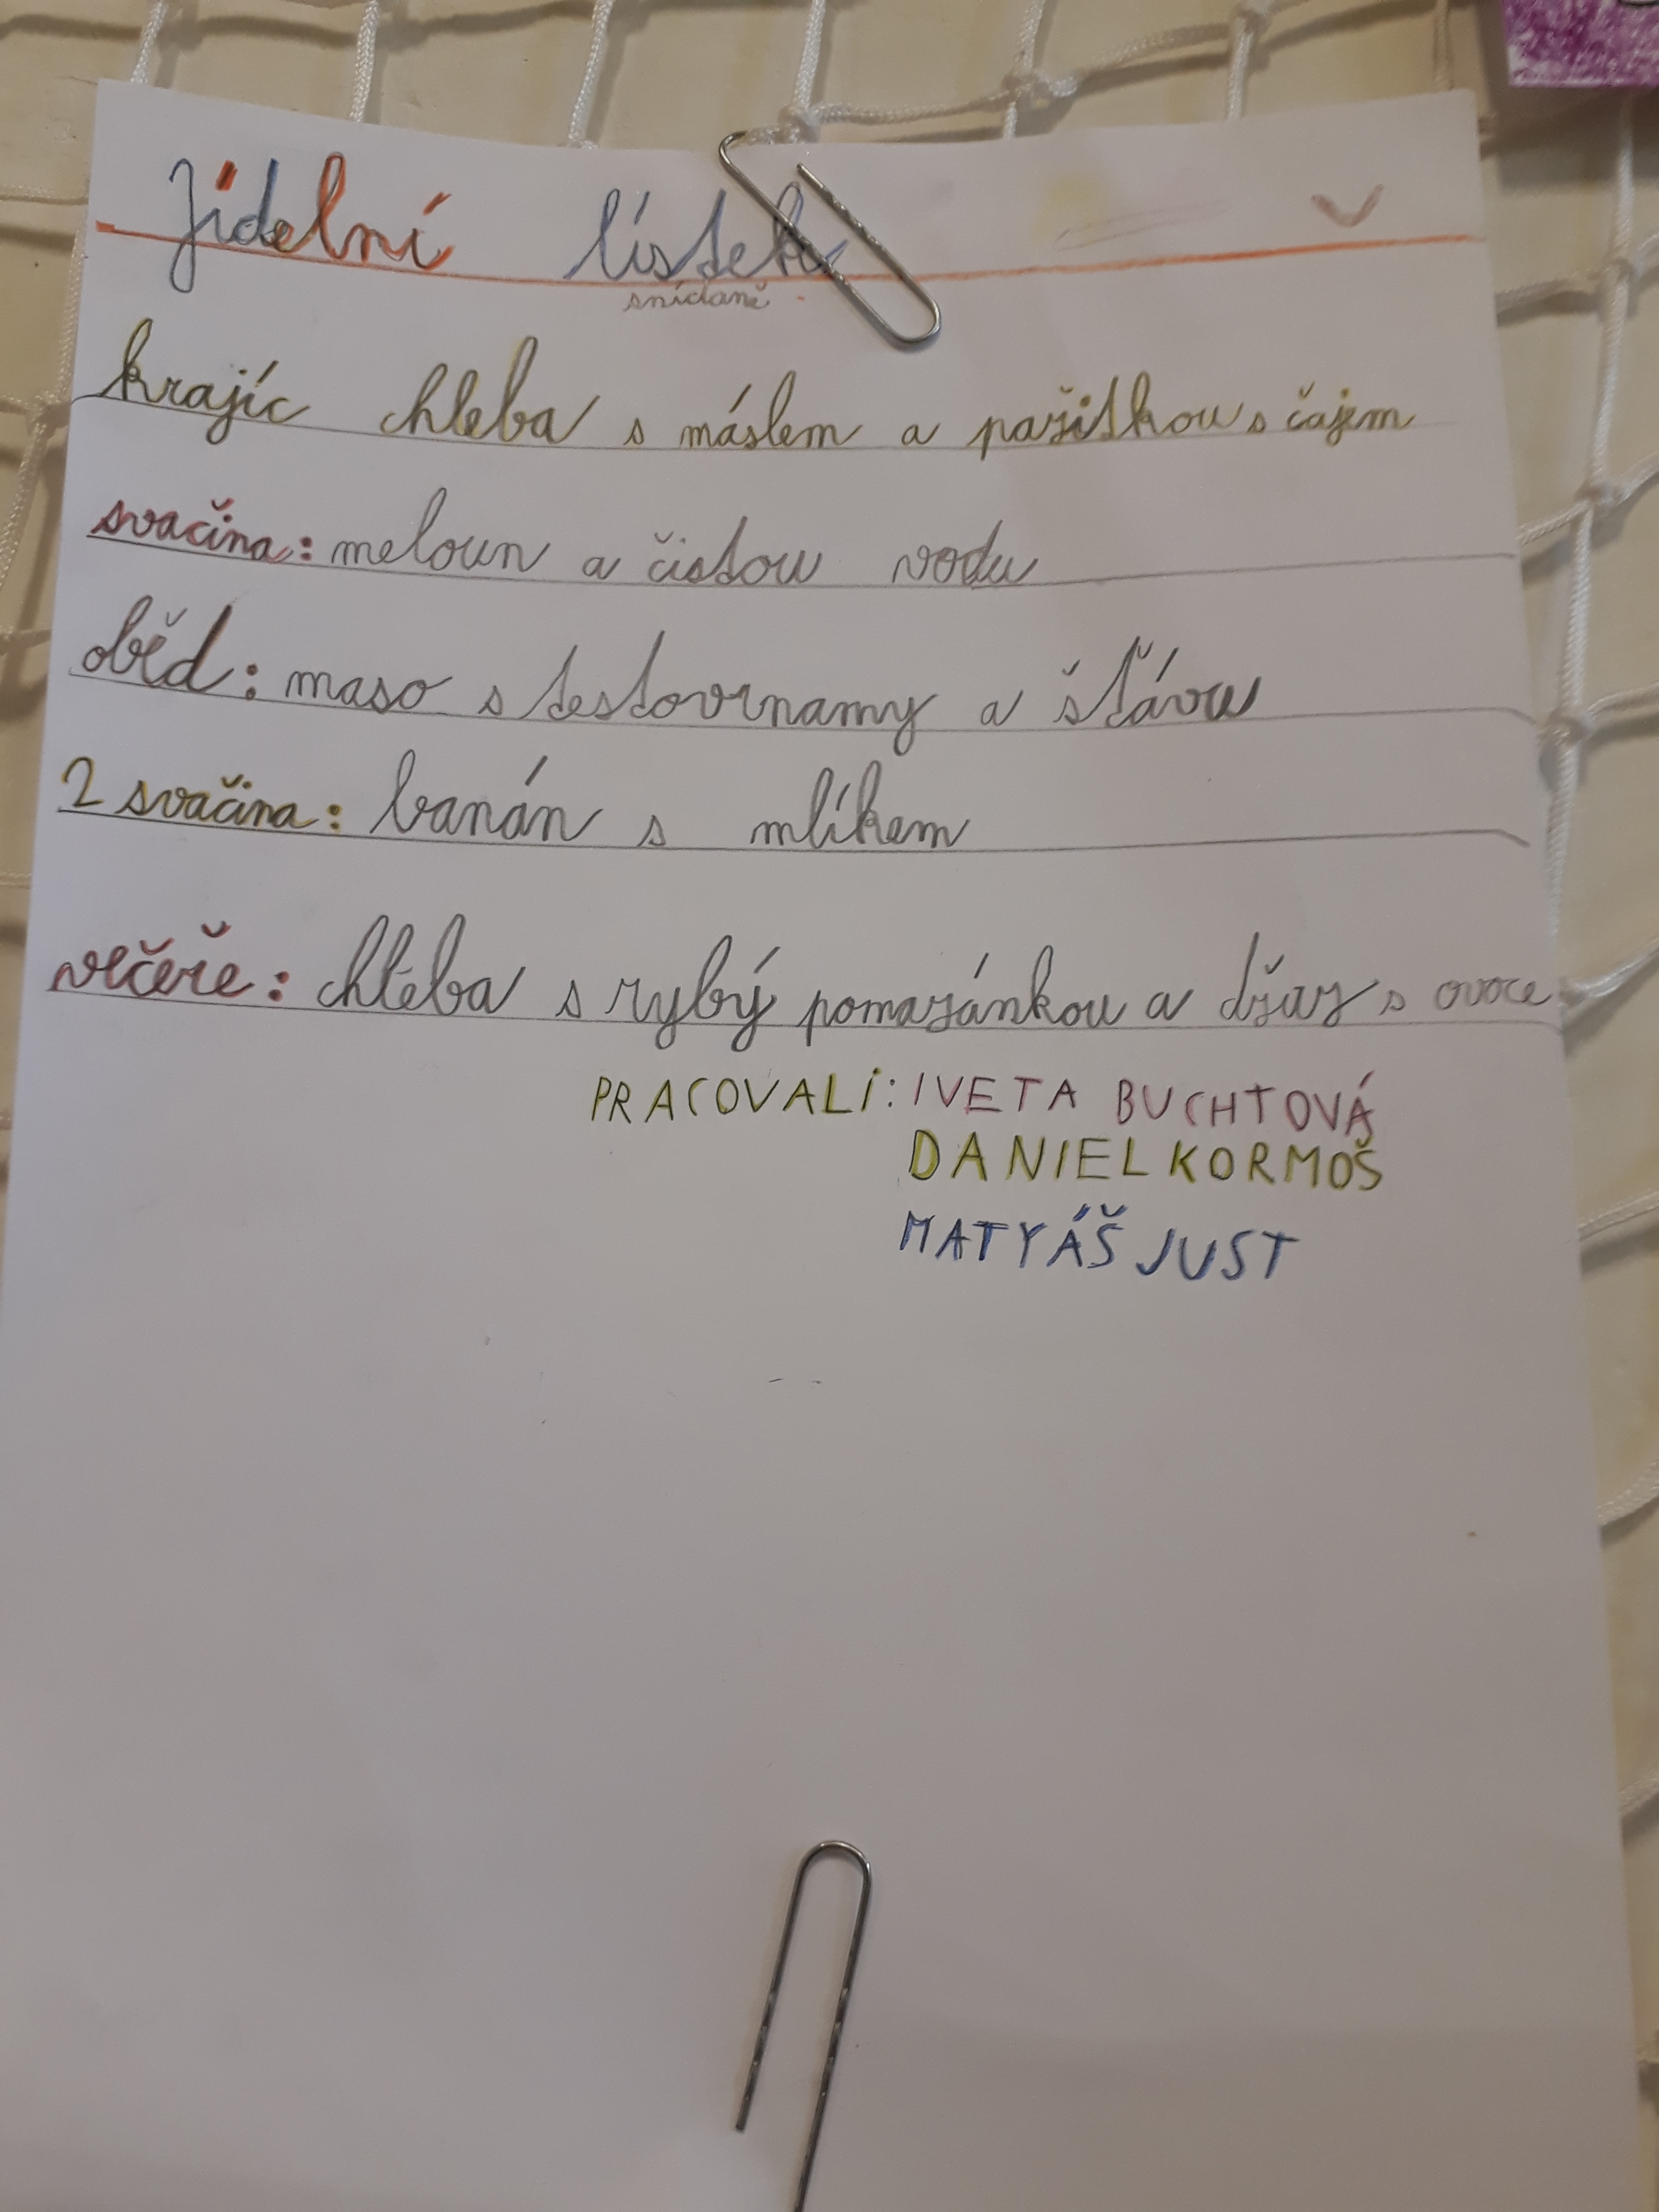 Jídelní lístek
snídaně
krajíc chleba s máslem a pažitkou s čajem
svačina: meloun a čistou vodu
oběd: maso s testovinamy a šťávu
2 svačina: banán s mlíkem
večeře: chleba s rybý pomazánkou a džus s ovoce
PRACOVALI: IVETA BUCHTOVÁ
DANIEL KORMOŠ
MATYÁŠ JUST